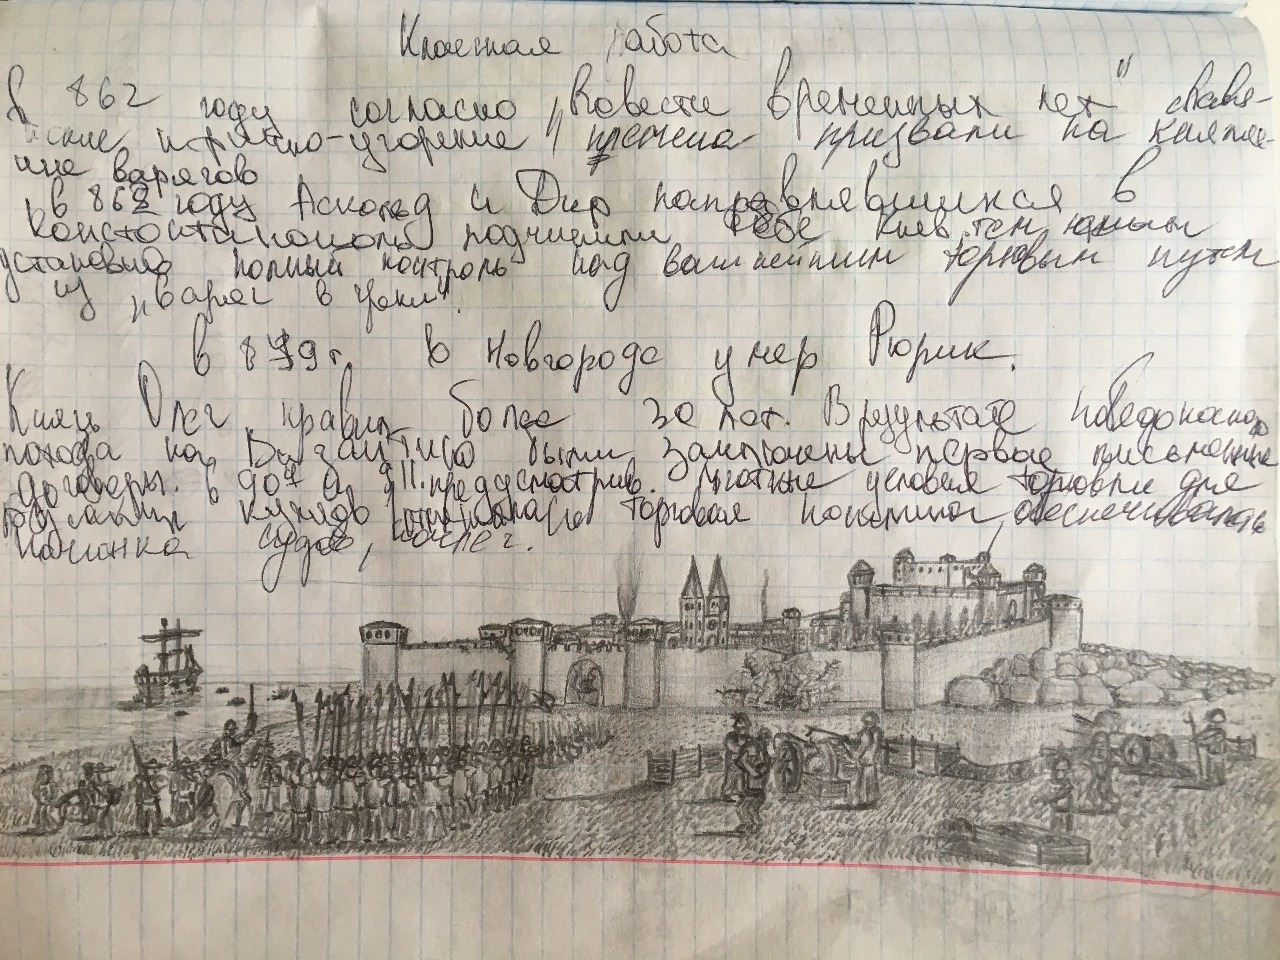 Классная работа
В 862 году согласно „Повести временных лет" славя-
нские и финно-угорские племена призвали на княже-
ние варягов
в 862 году Аскольд и Дир направлявшихся в
Константинополь подчинили себе Киев тем самым
установив полный контроль над важнейшим торговым путем
из „варяг в греки".
в 879 г. в Новгороде умер Рюрик.
Князь Олег правил более 30 лет. В результате победоносного
похода на Византию были заключены первые письменные
договоры. в 907 и 911. предусматрив. льготные условия торговли для
княжь торговая пошлина обеспечивалась
починка судов, ночлег.